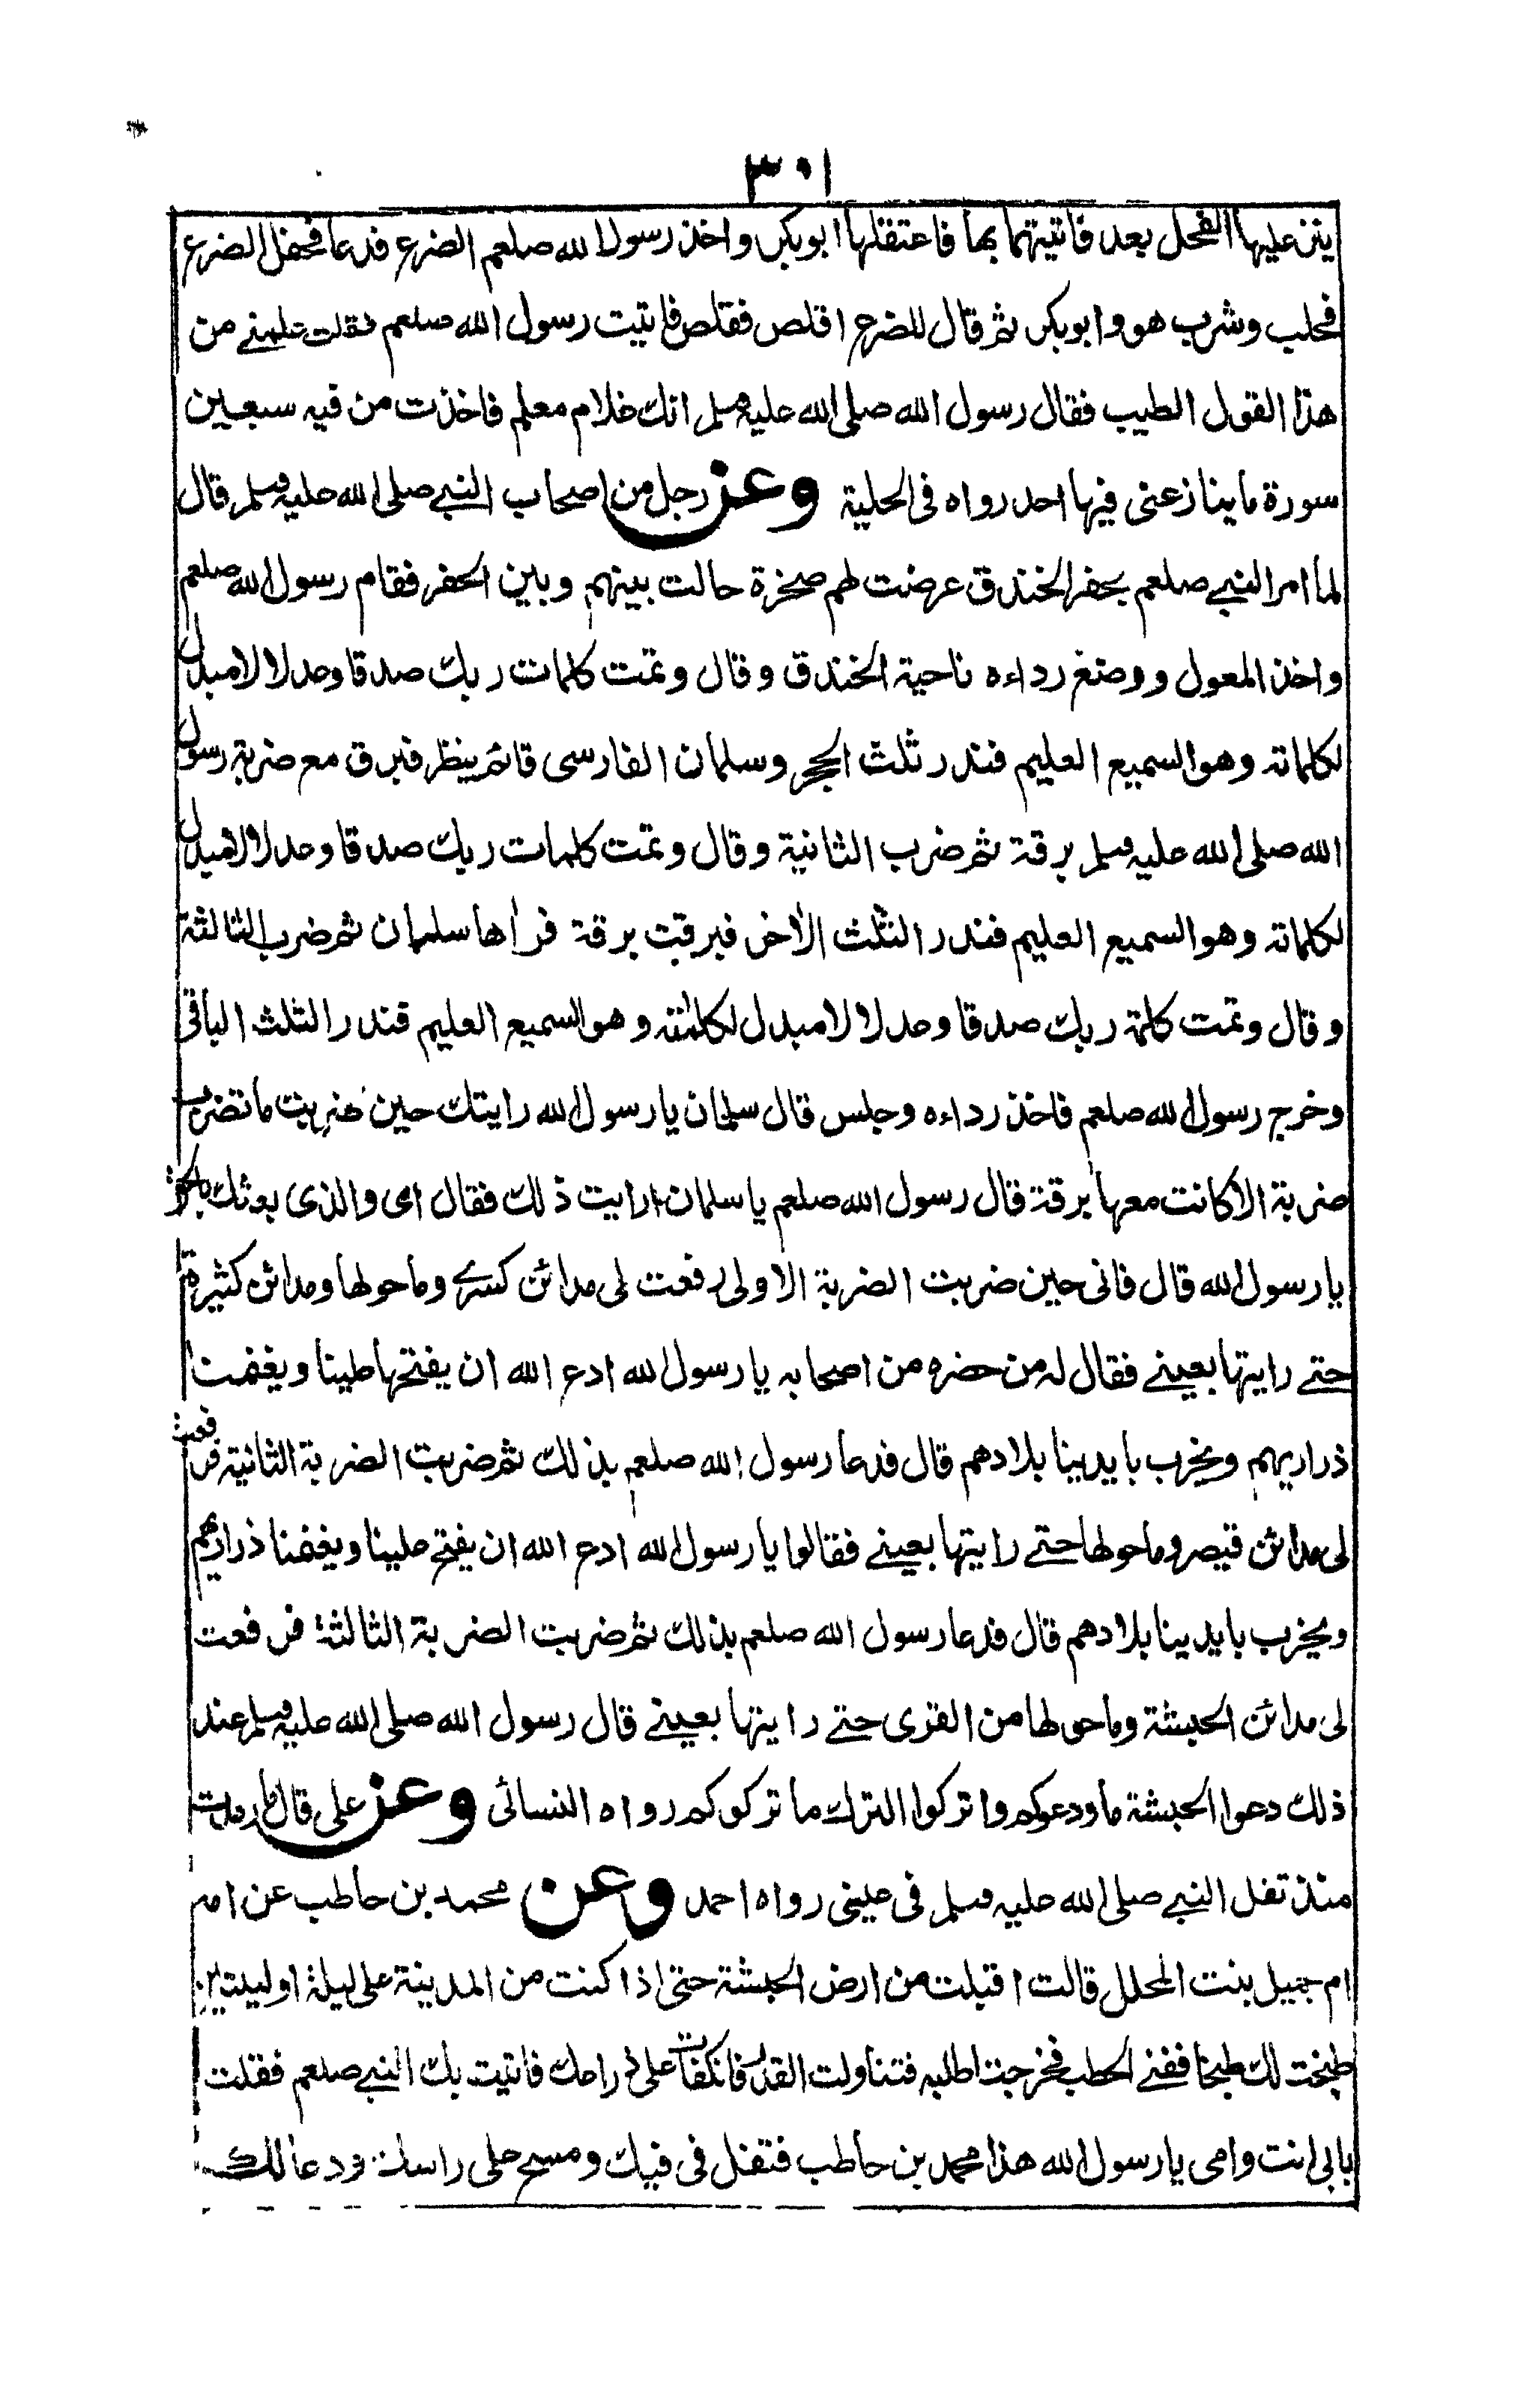 ٣٠١
ينز عليها الفحل بعد فاتيتهما بها فاعتقلها ابوبكر واخذ رسول الله صلعم الضرع فدعا فحفل الضرع
فحلب وشرب هو وابوبكر ثم قال للضرع اقلص فقلص فاتيت رسول الله صلعم فقلت علمني من
هذا القول الطيب فقال رسول الله صلى الله عليه وسلم انك غلام معلم فاخذت من فيه سبعين
سورة ما ينازعنى فيها احد رواه فى الحلية وعن رجل من اصحاب النبي صلى الله عليه وسلم قال
لما امر النبي صلعم بحفر الخندق عرضت لهم صخرة حالت بينهم وبين الحفر فقام رسول الله صلعم
واخذ المعول ووضع رداءه ناحية الخندق وقال وتمت كلمات ربك صدقا وعدلا لا مبدل
لكلماته وهو السميع العليم فندر ثلث الحجر وسلمان الفارسى قائم ينظر فبرق مع ضربة رسول
الله صلى الله عليه وسلم برقة ثم ضرب الثانية وقال وتمت كلمات ربك صدقا وعدلا لا مبدل
لكلماته وهو السميع العليم فندر الثلث الاخر فبرقت برقة فراها سلمان ثم ضرب الثالثة
وقال وتمت كلمة ربك صدقا وعدلا لا مبدل لكلمته وهو السميع العليم فندر الثلث الباقى
وخرج رسول الله صلعم فاخذ رداءه وجلس قال سلمان يا رسول الله رايتك حين ضربت ما تضرب
ضربة الا كانت معها برقة قال رسول الله صلعم يا سلمان ارايت ذلك فقال اى والذى بعثك بالحق
يا رسول الله قال فانى حين ضربت الضربة الاولى رفعت لى مدائن كسرى وما حولها ومدائن كثيرة
حتے رايتها بعينے فقال له من حضره من اصحابه يا رسول الله ادع الله ان يفتحها علينا ويغنمنا
ذراريهم ويخرب بايدينا بلادهم قال فدعا رسول الله صلعم بذلك ثم ضربت الضربة الثانية فرفعت
لى مدائن قيصر وما حولها حتے رايتها بعينے فقالوا يا رسول الله ادع الله ان يفتح علينا ويغنمنا ذراريهم
ويخرب بايدينا بلادهم قال فدعا رسول الله صلعم بذلك ثم ضربت الضربة الثالثة فرفعت
لى مدائن الحبشة وما حولها من القرى حتے رايتها بعينے قال رسول الله صلى الله عليه وسلم عند
ذلك دعوا الحبشة ما ودعوكم واتركوا الترك ما تركوكم رواه النسائى وعن على قال ما رمدت
منذ تفل النبي صلى الله عليه وسلم فى عينى رواه احمد وعن محمد بن حاطب عن امه
ام جميل بنت المحلل قالت اقبلت من ارض الحبشة حتى اذا كنت من المدينة على ليلة او ليلتين
طبخت لك طبخا ففنے الحطب فخرجت اطلبه فتناولت القدر فانكفات على ذراعك فاتيت بك النبي صلعم فقلت
بابى انت وامى يا رسول الله هذا محمد بن حاطب فتفل فى فيك ومسح على راسك ودعا لك